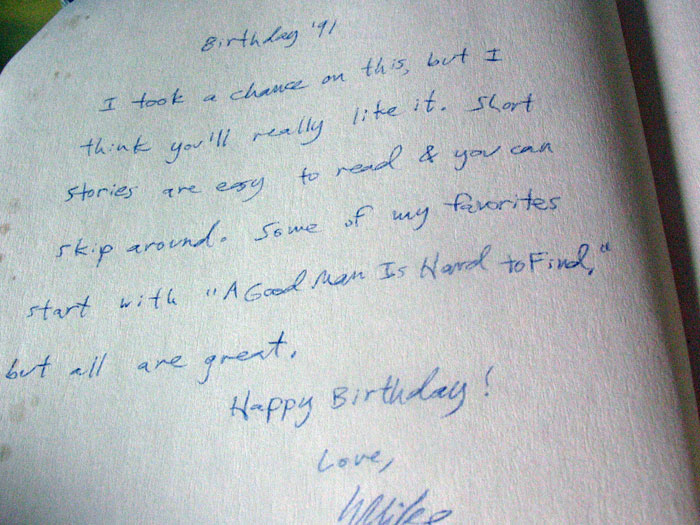 Birthday '91
I took a chance on this, but I
think you'll really like it. Short
stories are easy to read & you can
skip around. Some of my favorites
start with "A Good Man Is Hard to Find,"
but all are great.
Happy Birthday!
Love,
Mike